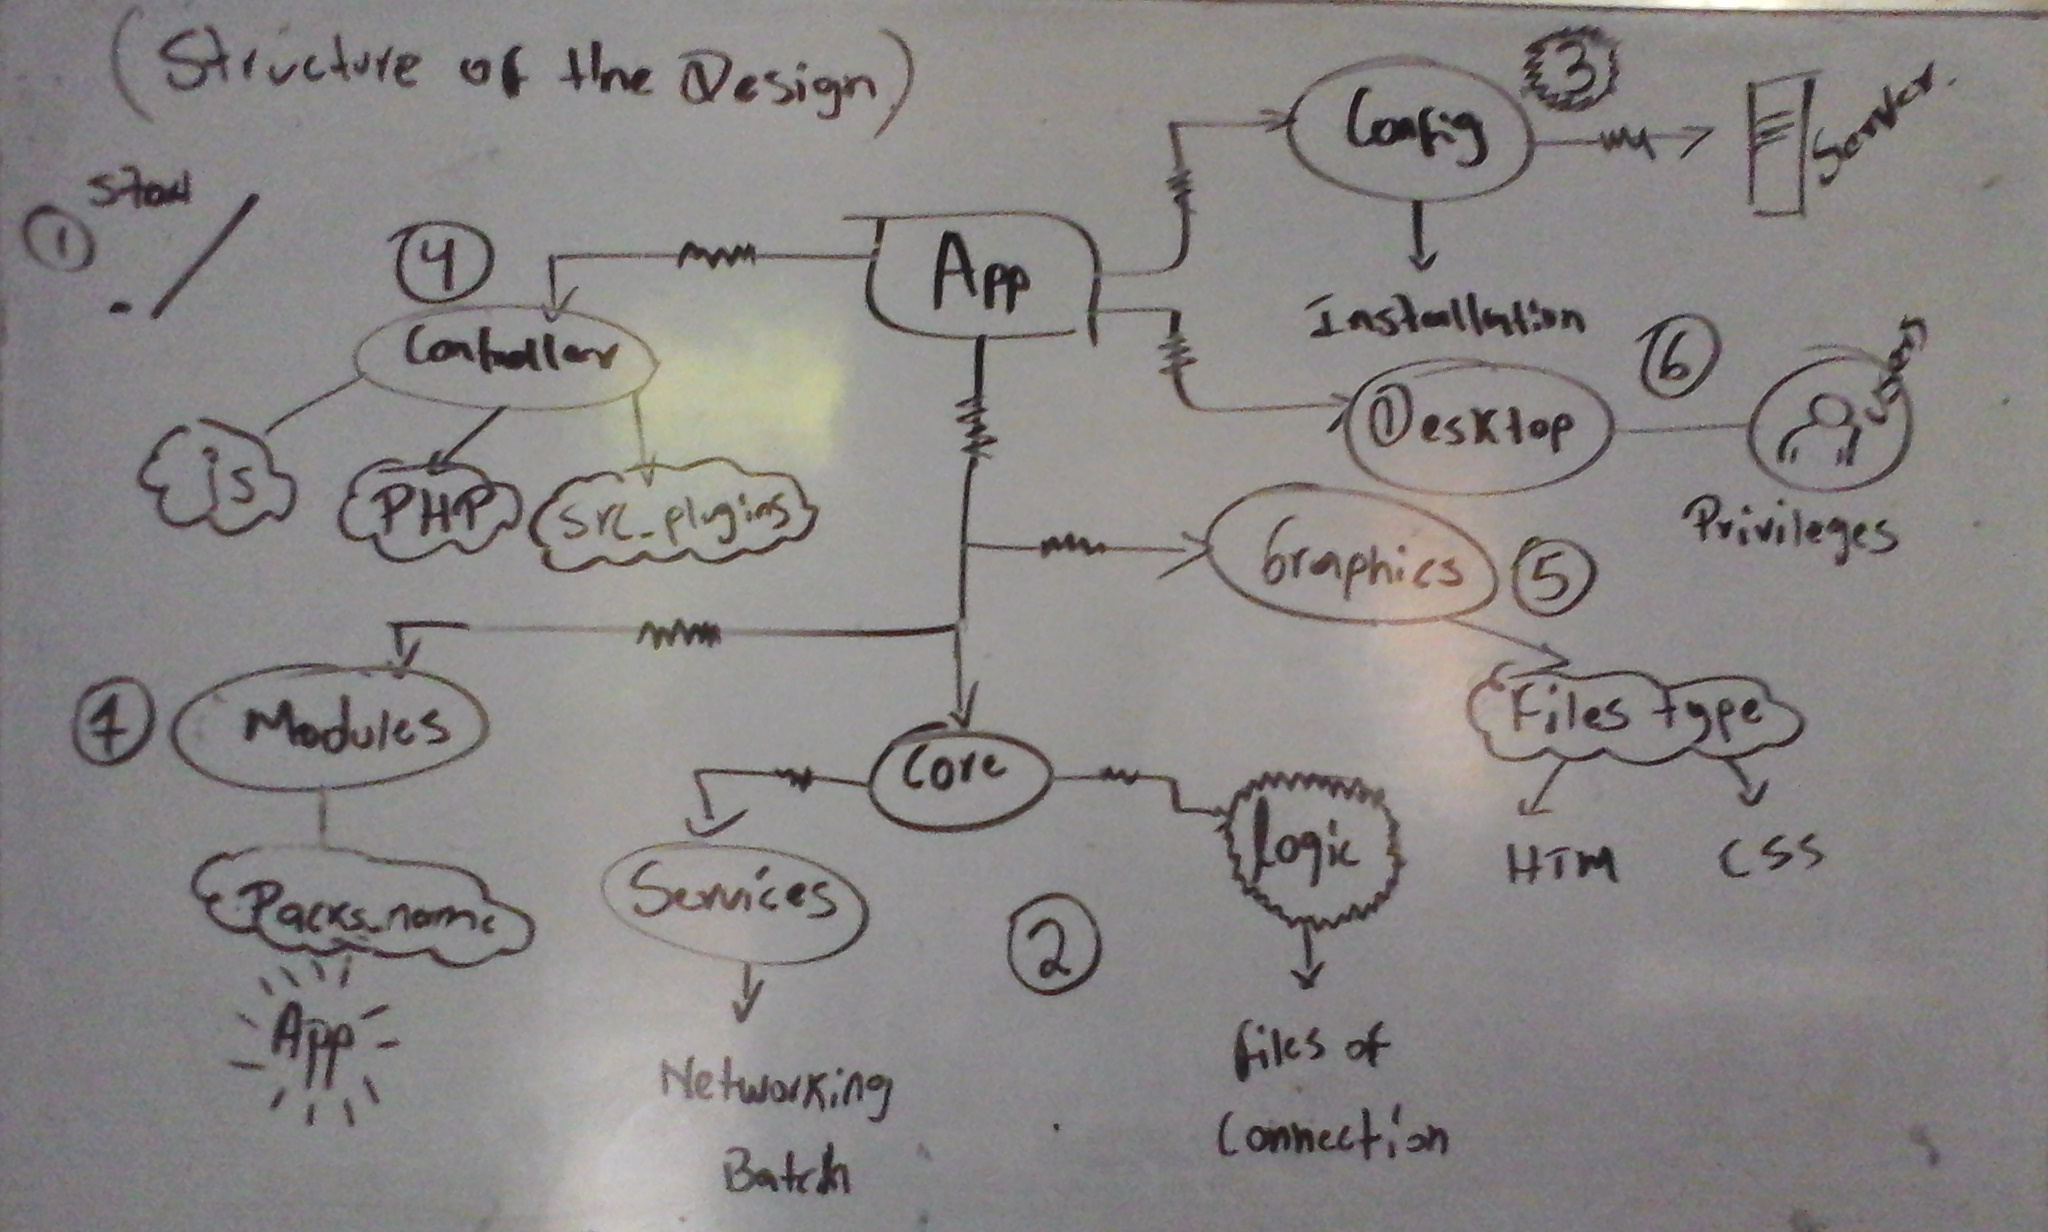 (Structure of the Design)
① Start
./
App
③
Config
Server.
Installation
④
Controller
js
PHP
src_plugins
Desktop
⑥
Users
Privileges
Graphics
⑤
Files type
HTM
CSS
Modules
Packs_name
App
Core
Services
Networking
Batch
②
Logic
files of
Connection